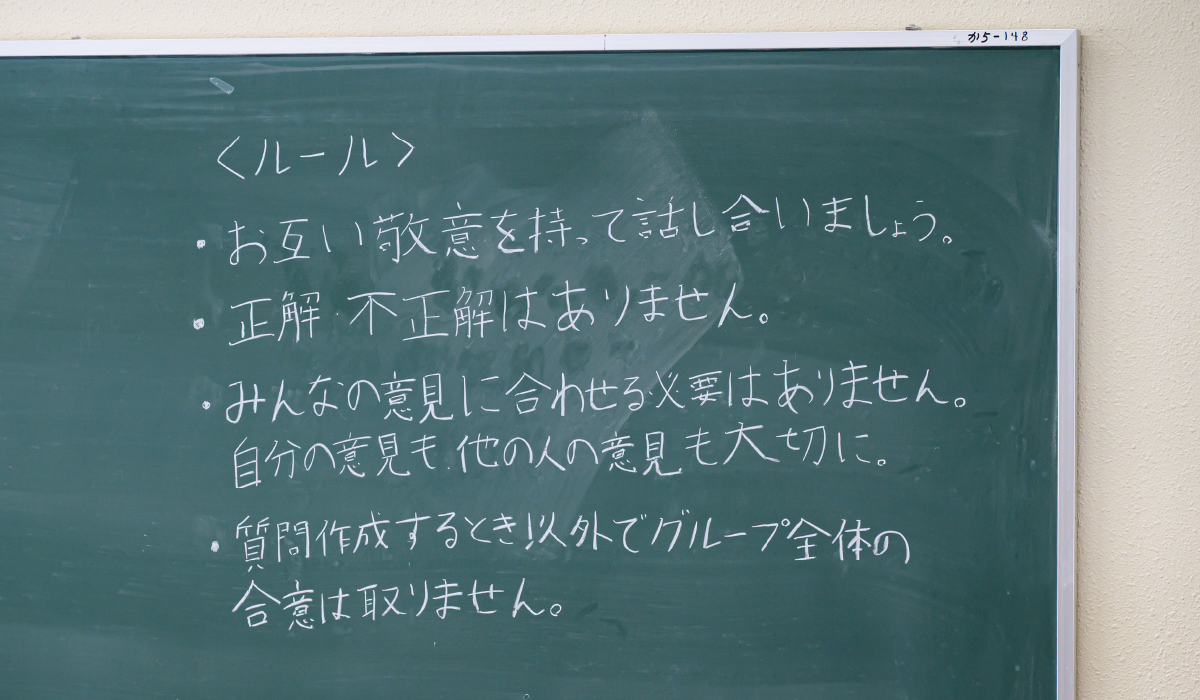 か5-148
〈ルール〉
・お互い敬意を持って話し合いましょう。
・正解・不正解はありません。
・みんなの意見に合わせる必要はありません。
自分の意見も、他の人の意見も大切に。
・質問作成するとき以外でグループ全体の
合意は取りません。